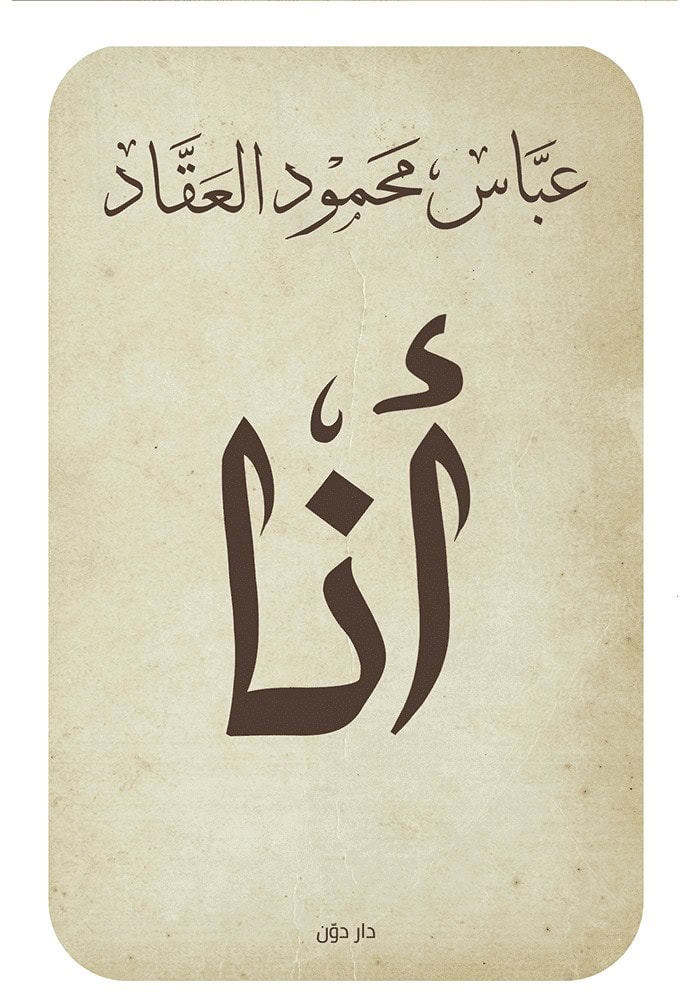 عبَّاس محَمُوْد العَقَّاد
أنا
دار دوّن